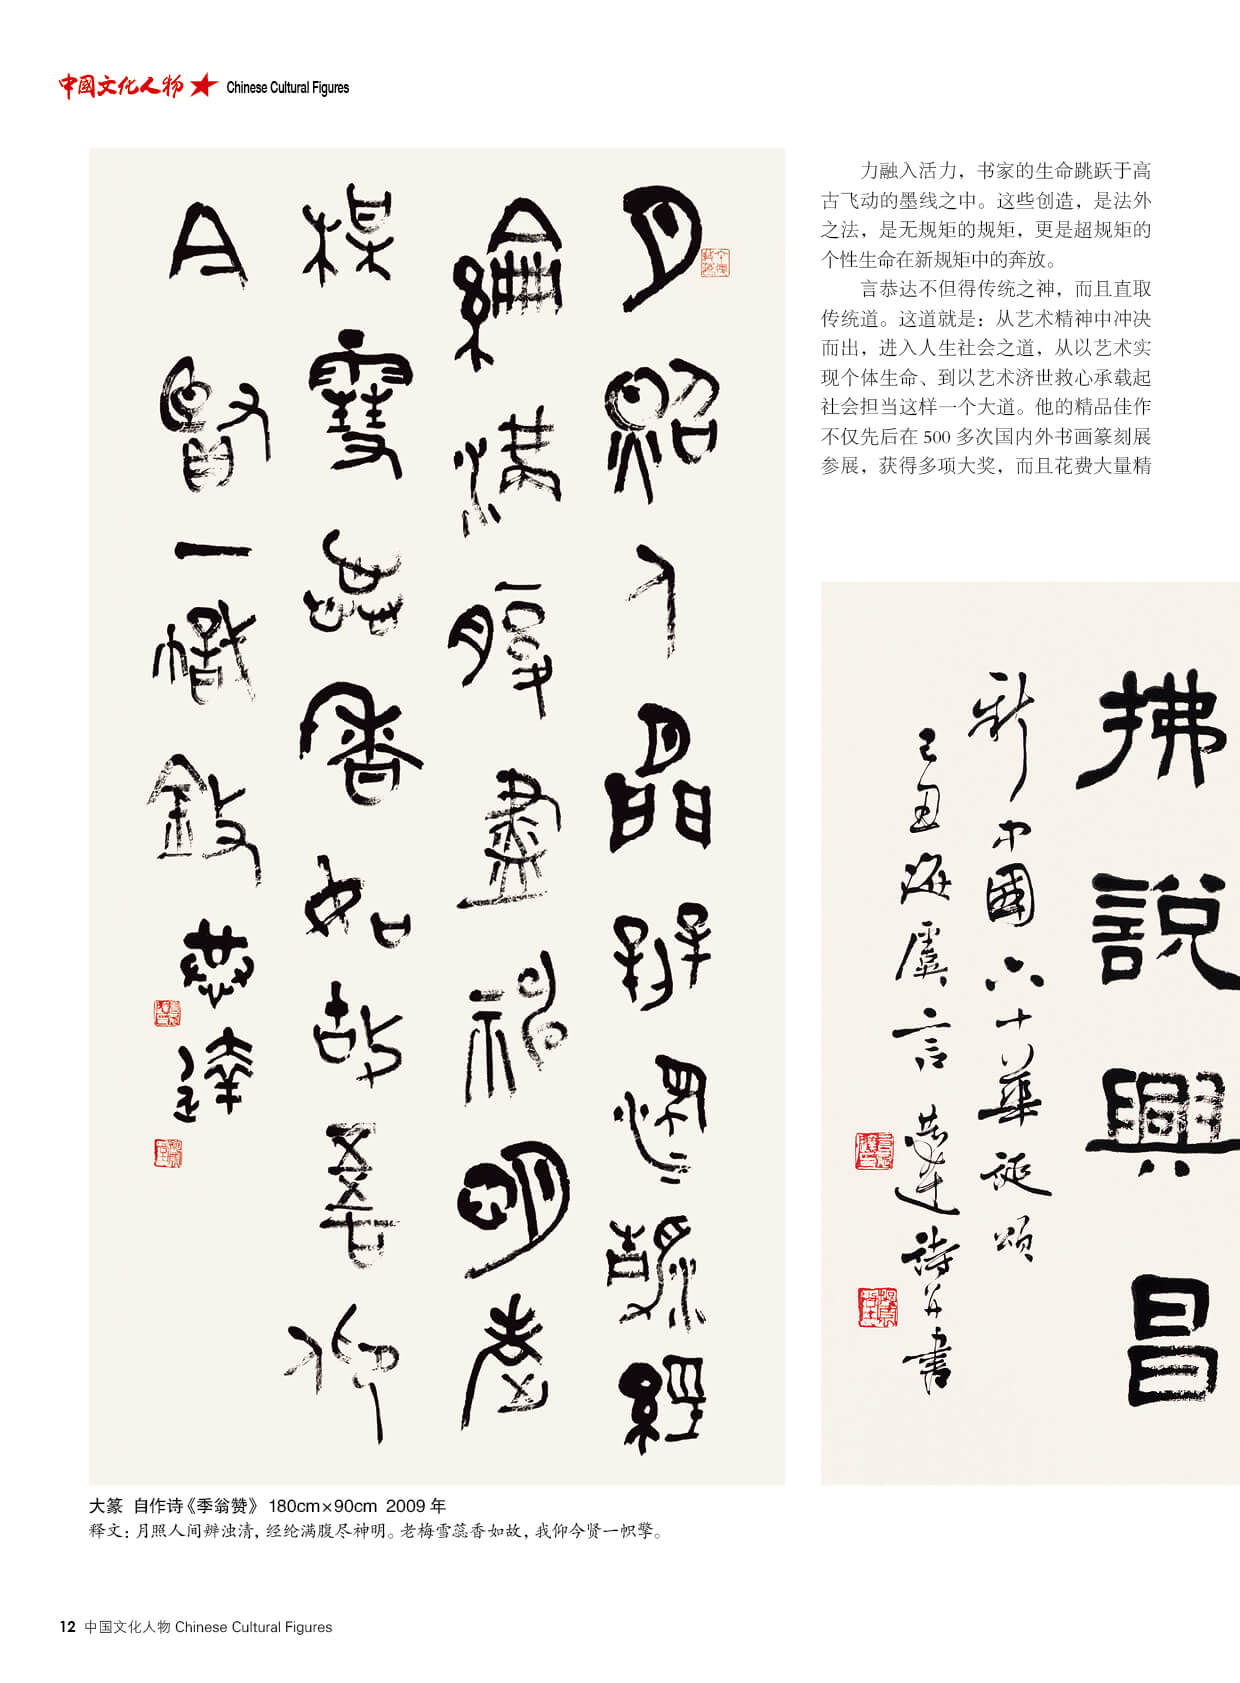 中國文化人物 Chinese Cultural Figures
月照人間辨濁清經
綸滿腹盡神明老
楳雪蕊香如故仰
今賢一幟擎
恭達
力融入活力，书家的生命跳跃于高
古飞动的墨线之中。这些创造，是法外
之法，是无规矩的规矩，更是超规矩的
个性生命在新规矩中的奔放。
言恭达不但得传统之神，而且直取
传统道。这道就是：从艺术精神中冲决
而出，进入人生社会之道，从以艺术实
现个体生命、到以艺术济世救心承载起
社会担当这样一个大道。他的精品佳作
不仅先后在 500 多次国内外书画篆刻展
参展，获得多项大奖，而且花费大量精
拂說興昌
新中國六十華誕頌
己丑海虞言恭達詩并書
大篆 自作诗《季翁赞》 180cm×90cm 2009 年
释文：月照人间辨浊清，经纶满腹尽神明。老梅雪蕊香如故，我仰今贤一帜擎。
12 中国文化人物 Chinese Cultural Figures